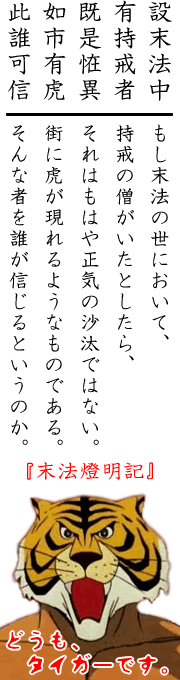 設末法中
有持戒者
既是恠異
如市有虎
此誰可信
もし末法の世において、
持戒の僧がいたとしたら、
それはもはや正気の沙汰ではない。
街に虎が現れるようなものである。
そんな者を誰が信じるというのか。
『末法燈明記』
どうも、
タイガーです。